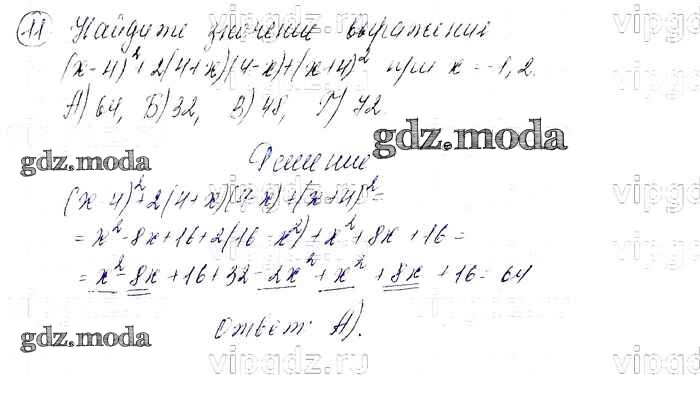 11 Найдите значение выражения
(x-4)²+2(4+x)(4-x)+(x+4)² при x=-1,2.
А) 64, Б) 32, В) 48, Г) 72
gdz.moda
gdz.moda
Решение
(x-4)²+2(4+x)(4-x)+(x+4)²=
=x²-8x+16+2(16-x²)+x²+8x+16=
=x²-8x+16+32-2x²+x²+8x+16=64
Ответ: А).
gdz.moda
vipgdz.ru
vipgdz.ru